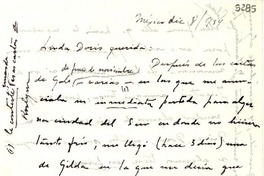 3285
México dic 8/954
Linda Doris querida:
de fines de noviembre
Después de las cartas
de Gale — varias — en las que me anun-
ciaba su inmediata partida para algu-
na ciudad del Sur en donde no hiciera
tanto frío, me llegó (hace 3 días) una
de Gilda en la que me decía que
(1) le contesté